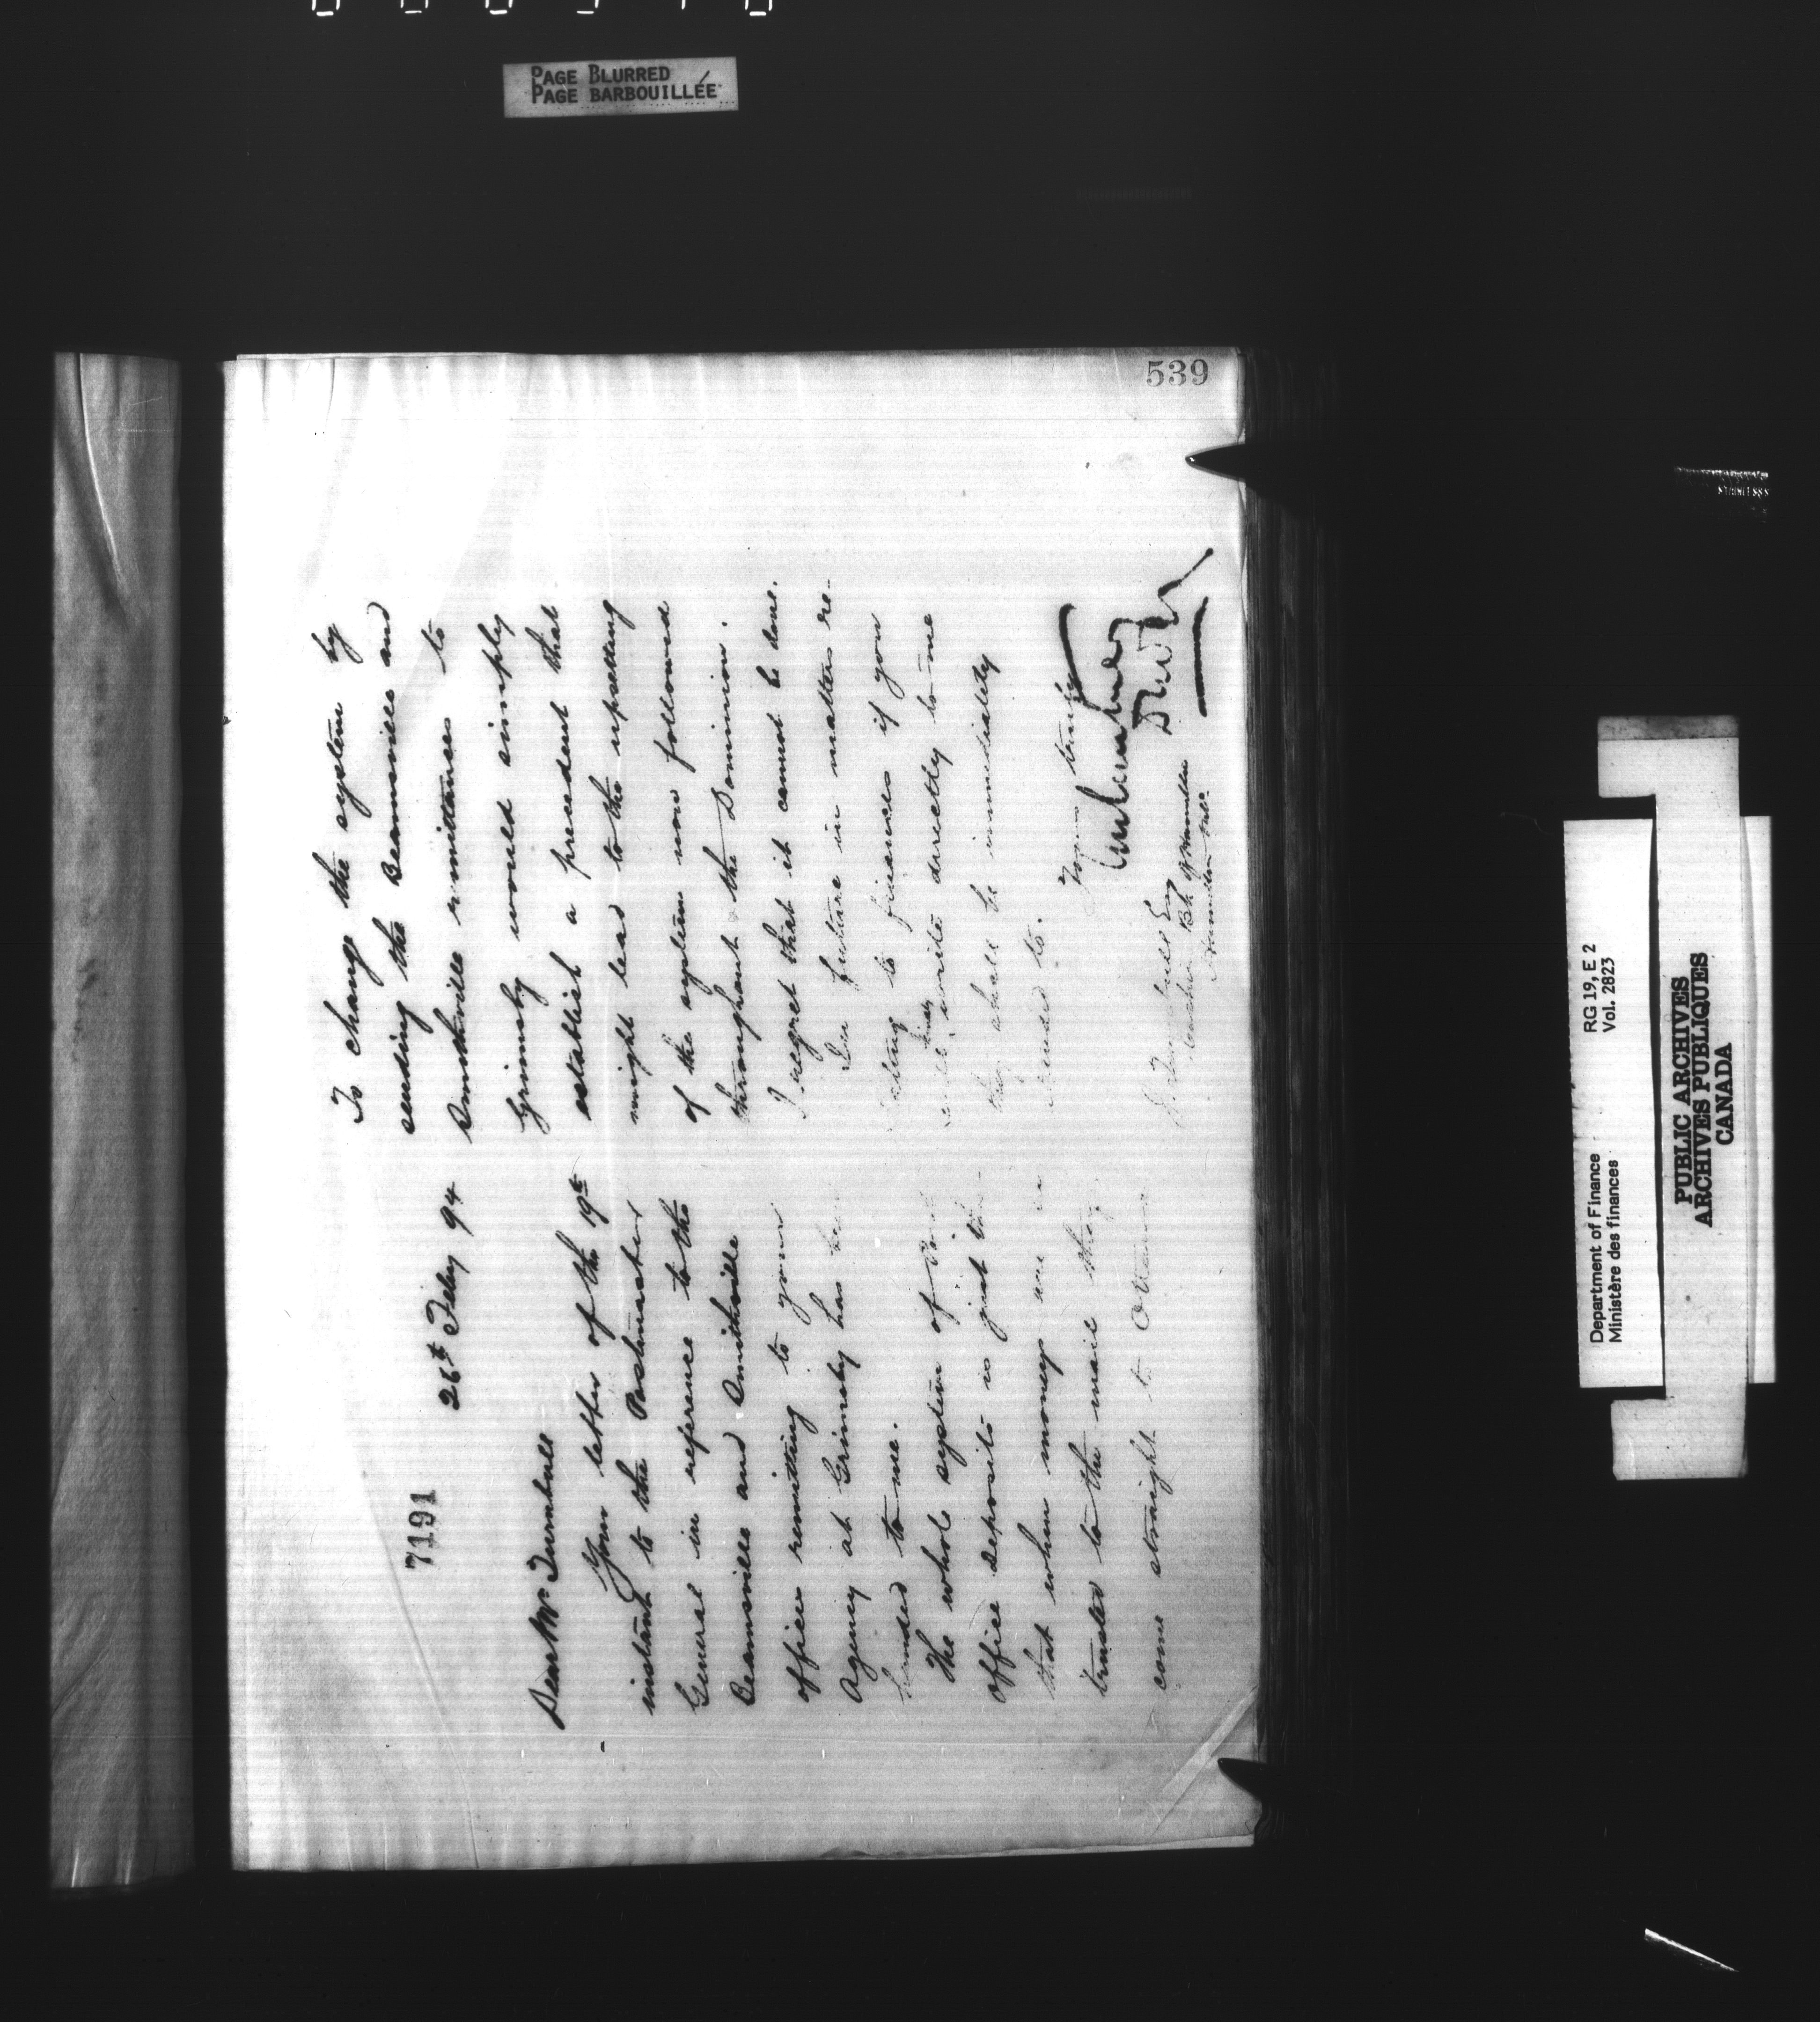 PAGE BLURRED
PAGE BARBOUILLÉE
539
7191
26th Feby 94
Dear Mr Turnbull
Your letter of the 19th
instant to the Postmaster
General in reference to the
Beamsville and Smithville
offices remitting to your
Agency at Grimsby has been
handed to me.
The whole system of Post
office deposits is just this
that when moneys are in
trusted to the mail they
come straight to Ottawa.
To change the system by
sending the Beamsville and
Smithville remittances to
Grimsby would simply
establish a precedent that
might lead to the upsetting
of the system now followed
throughout the Dominion.
I regret that it cannot be done.
In future in matters re-
lating to finances if you
will kindly write directly to me
they shall be immediately
attended to.
Yours truly
J. Turnbull Esq
Cashier Bk of Hamilton
Hamilton
Department of Finance RG 19, E 2
Ministère des finances Vol. 2823
PUBLIC ARCHIVES
ARCHIVES PUBLIQUES
CANADA